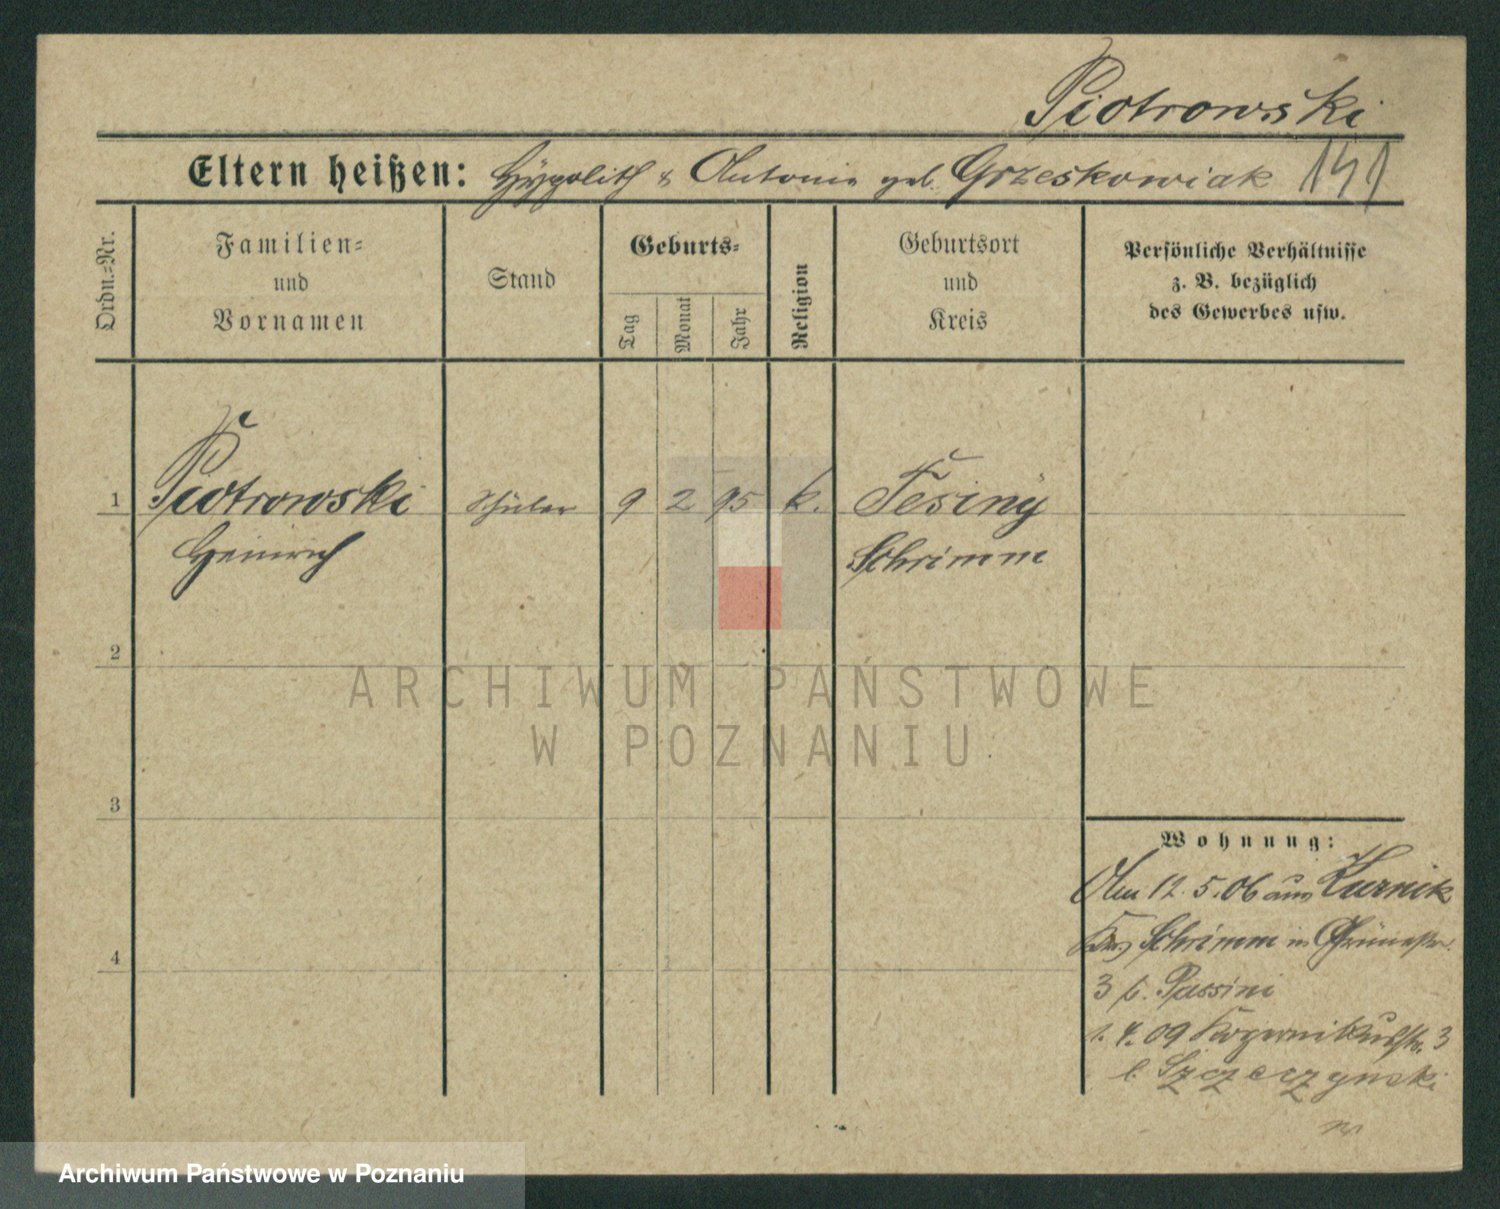 Piotrowski
Eltern heißen: Hypolith & Antonie geb. Grzeskowiak 141
Ordn.=Nr.
Familien=
und
Vornamen
Stand
Geburts=
Tag
Monat
Jahr
Religion
Geburtsort
und
Kreis
Persönliche Verhältnisse
z. B. bezüglich
des Gewerbes usw.
1 Piotrowski Schüler 9 2 95 k. Tesiny
Heinrich Schrimm
2
3
4
Wohnung:
Am 12.5.06 aus Kurnik
Krs Schrimm in Grünestr.
3 b. Passini
1. 4. 09 Kopernikusstr. 3
b. Szczerzynski
ARCHIWUM PAŃSTWOWE
W POZNANIU
Archiwum Państwowe w Poznaniu